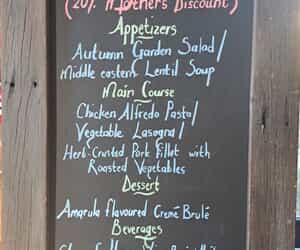 (20% Mother's Discount)
Appetizers
Autumn Garden Salad/
Middle eastern Lentil Soup
Main Course
Chicken Alfredo Pasta/
Vegetable Lasagna/
Herb Crusted Pork Fillet with
Roasted Vegetables
Dessert
Amarula flavoured Cremé Brulé
Beverages